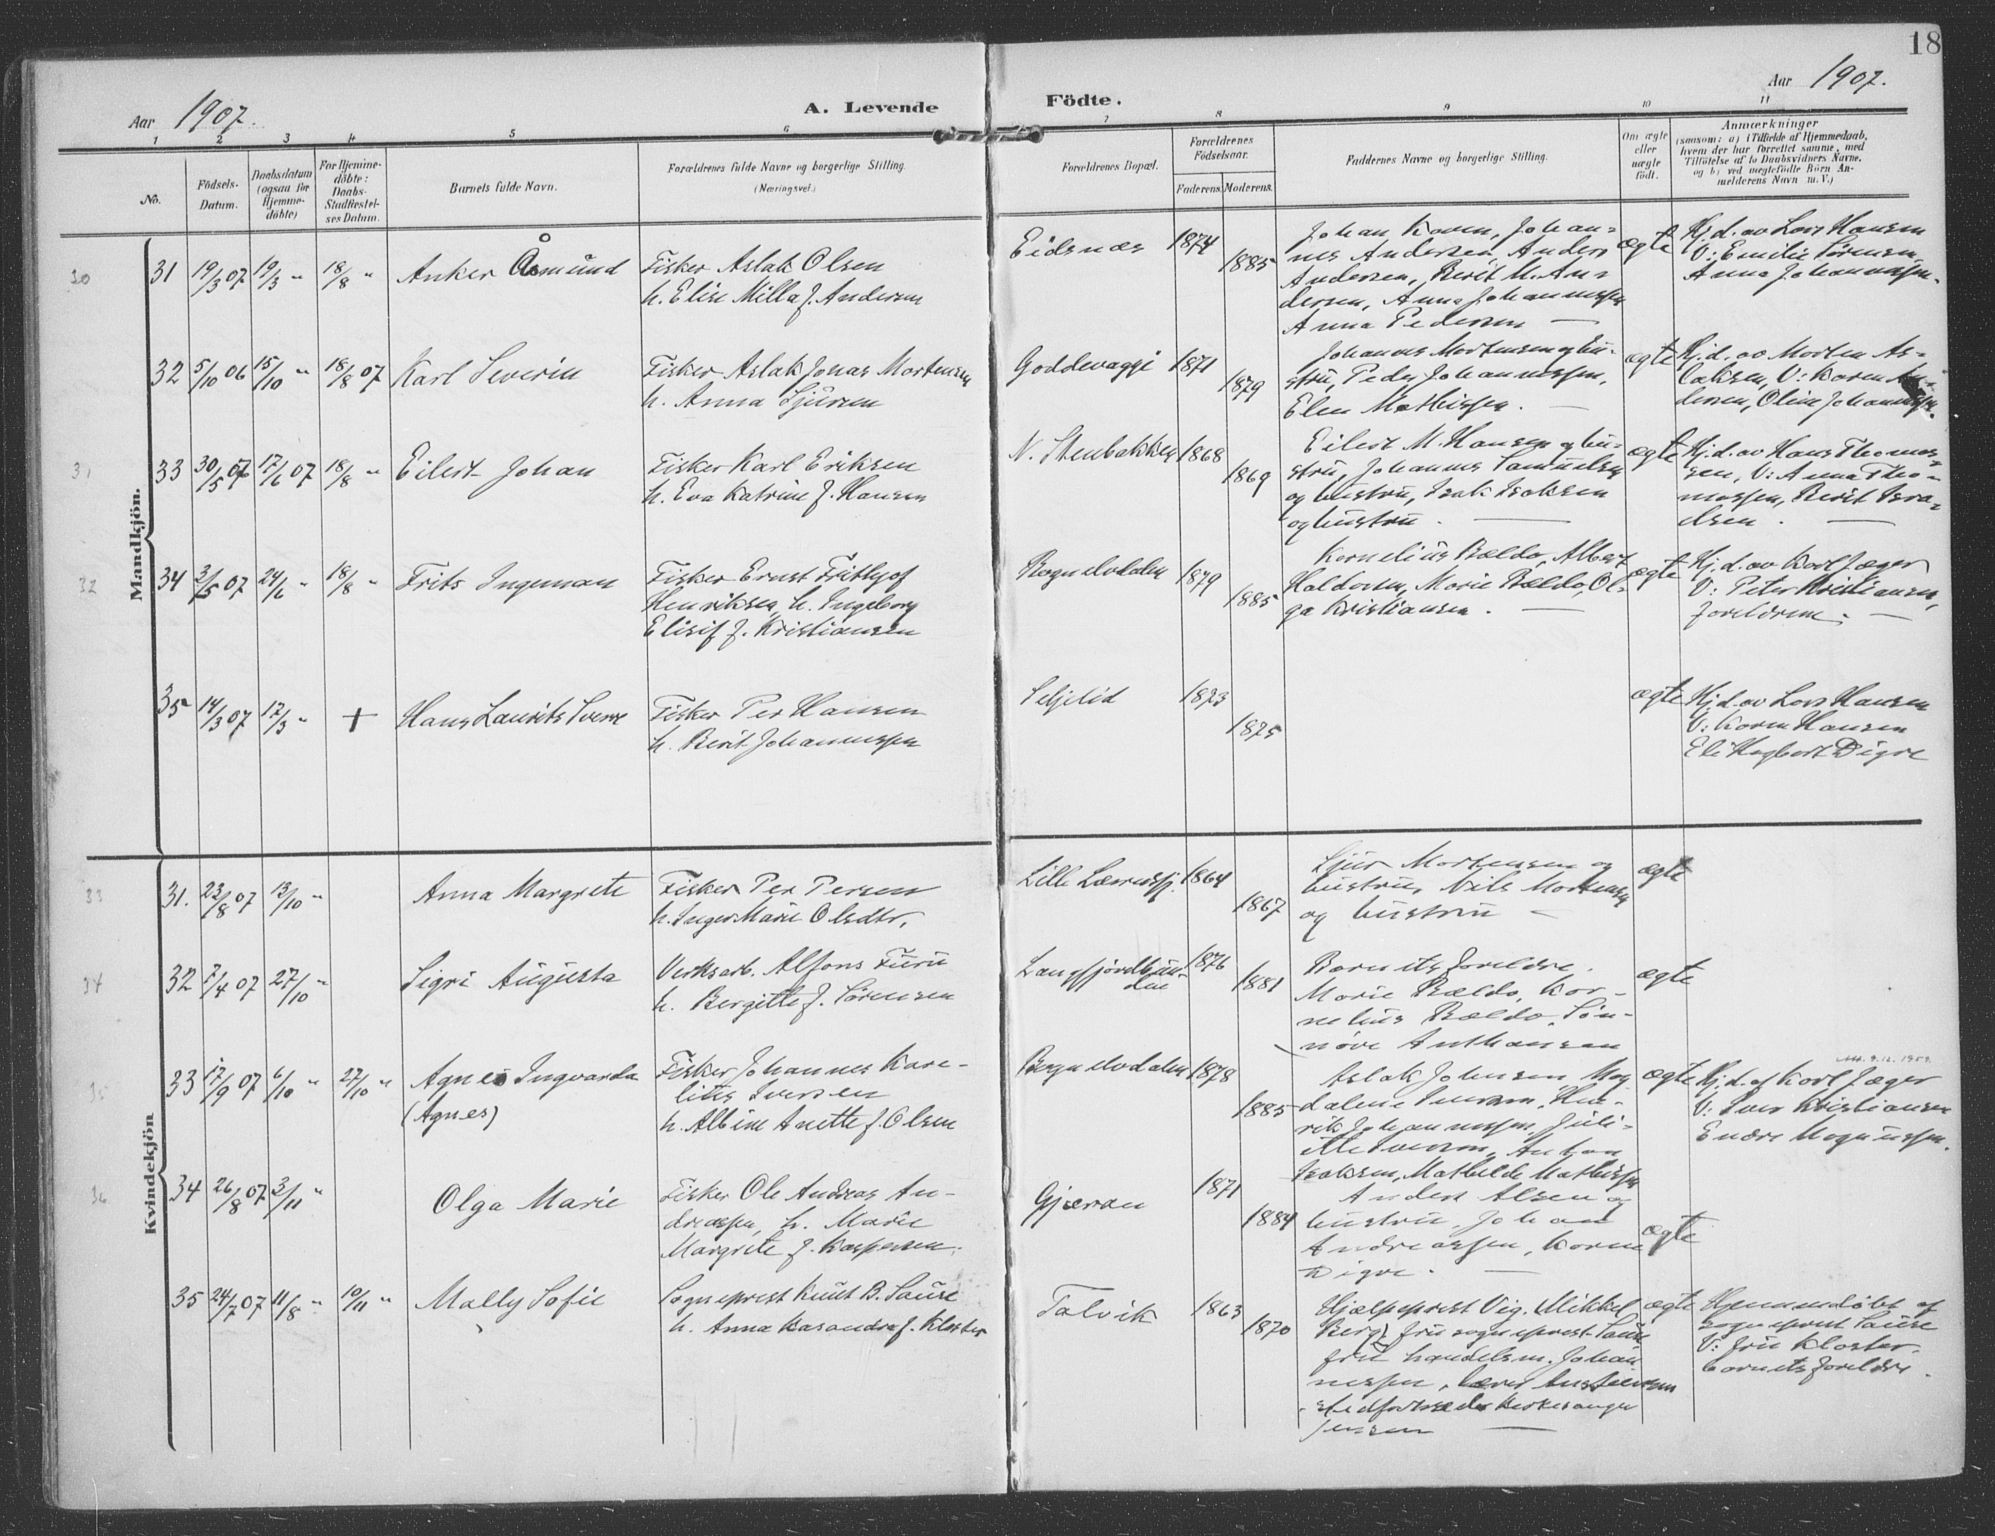 18
Aar 1907.
A. Levende
Födte.
Aar 1907.
1 2 3 4 5 6 7 8 9 10 11
No.
Födsels-
Datum.
Daabsdatum
(ogsaa for
Hjemme-
döbte)
For Hjemme-
döbte:
Daabs-
Stadfæstel-
ses Datum.
Barnets fulde Navn.
Forældrenes fulde Navne og borgerlige Stilling.
(Næringsvei.)
Forældrenes Bopæl.
Forældrenes
Födselsaar.
Faderens.
Moderens.
Faddernes Navne og borgerlige Stilling.
Om ægte
eller
uægte
födt.
Anmærkninger
(saasom: a) i Tilfælde af Hjemmedaab,
hvem der har forrettet samme, med
Tilföielse af to Daabsvidners Navne,
og b) ved uægtefödte Börn An-
melderens Navn m. V.)
Mandkjön.
30
31 19/3 07 19/3 " 18/8 " Anker Åsmund
Fisker Aslak Olsen
h. Elise Milla f. Andersen
Eidsnæs 1874
1885
Johan Karen, Johan-
nes Andersen, Anders
Andersen, Berit M. An-
dersen, Anna Johannessen
Anna Pedersen —
ægte
Hj.d. av Lars Hansen
V: Emilie Sørensen,
Anna Johannessen.
32 5/10 06 15/10 " 18/8 07 Karl Severin
Fisker Aslak Jonas Mortensen
h. Anna Sjursen
Goddevaggi 1871
1879
Johannes Mortensen og hu-
stru, Peder Johannessen,
Elen Mathissen. —
ægte
Hj.d. av Morten As-
laksen, V: Karen An-
dersen, Oline Johannessen.
31
33 30/5 07 17/6 07 18/8 " Eilert Johan
Fisker Karl Eriksen
h. Eva Katrine f. Hansen
N. Stenbakken 1868
1869
Eilert M. Hansen og hu-
stru, Johannes Samuelsen
og hustru, Isak Isaksen
og hustru. —
ægte
Hj.d. av Hans Thomas-
sen, V: Anna Tho-
massen, Berit Isra-
elsen. —
32
34 3/5 07 24/6 " 18/8 " Frits Ingeman
Fisker Ernst Frithjof
Henriksen, h. Ingeborg
Elisif f. Kristiansen
Bognelvdalen 1879
1885
Kornelius Bældo, Albert
Haldorsen, Marie Bældo, Ol-
ga Kristiansen. —
ægte
Hj.d. av Karl Jæger
V: Peter Kristiansen,
forældrene. —
35 14/3 07 17/3 " + Hans Laurits Sverre
Fisker Per Hansen
h. Berit Johannessen
Seljelid 1873
1875
ægte
Hj.d. av Lars Hansen
V: Karen Hansen
Eli Hagbart Digre
Kvindekjön
33
31. 23/8 07 13/10 " Anna Margrete
Fisker Per Persen
h. Inger Marie Olsdtr.
Lille Lærredsfj. 1864
1867
Sjur Mortensen og
hustru, Nils Mortensen
og hustru —
ægte
34
32 7/4 07 27/10 " Sigri Augusta
Verksarb. Alfons Furu
h. Bergitte f. Sørensen
Langfjordbun-
den 1876
1881
Barnets forældre.
Marie Bældo, Kor-
nelius Bældo, Søn-
nøve Anthonsen
ægte
35
33 17/9 07 6/10 " 27/10 " Agnes Ingvarda
(Agnes)
Fisker Johannes Kare-
lius Iversen
h. Albine Anette f. Olsen
Bognelvdalen 1878
1885
Aslak Johnsen, Mag
dalene Iversen, Hen-
rik Johannessen, Juli-
Iversen, Anton
Isaksen, Mathilde Mathissen
ægte
Hj.d. af Karl Jæger
V: Iver Kristiansen
Endre Magnussen.
36
34 26/8 07 3/11 " Olga Marie
Fisker Ole Andreas An-
dreassen, h. Marie
Margrete f. Kaspersen.
Gjæran 1871
1884
Anders Alsen og
hustru, Johan
Andreassen, Karen
Digre. —
ægte
35 24/7 07 11/8 " 10/11 " Mally Sofie
Sogneprest Knut B. Saure
h. Anna Kasandra f. Kloster
Talvik 1863
1870
Hjælpeprest Vig. Mikkel
Berg, fru sogneprest Saure
fru handelsm. Johan
nessen, lærer
Kirkesanger
Jensen —
ægte
Hjemmedøbt af
sogneprest Saure
V: fru Kloster.
barnets forældre.